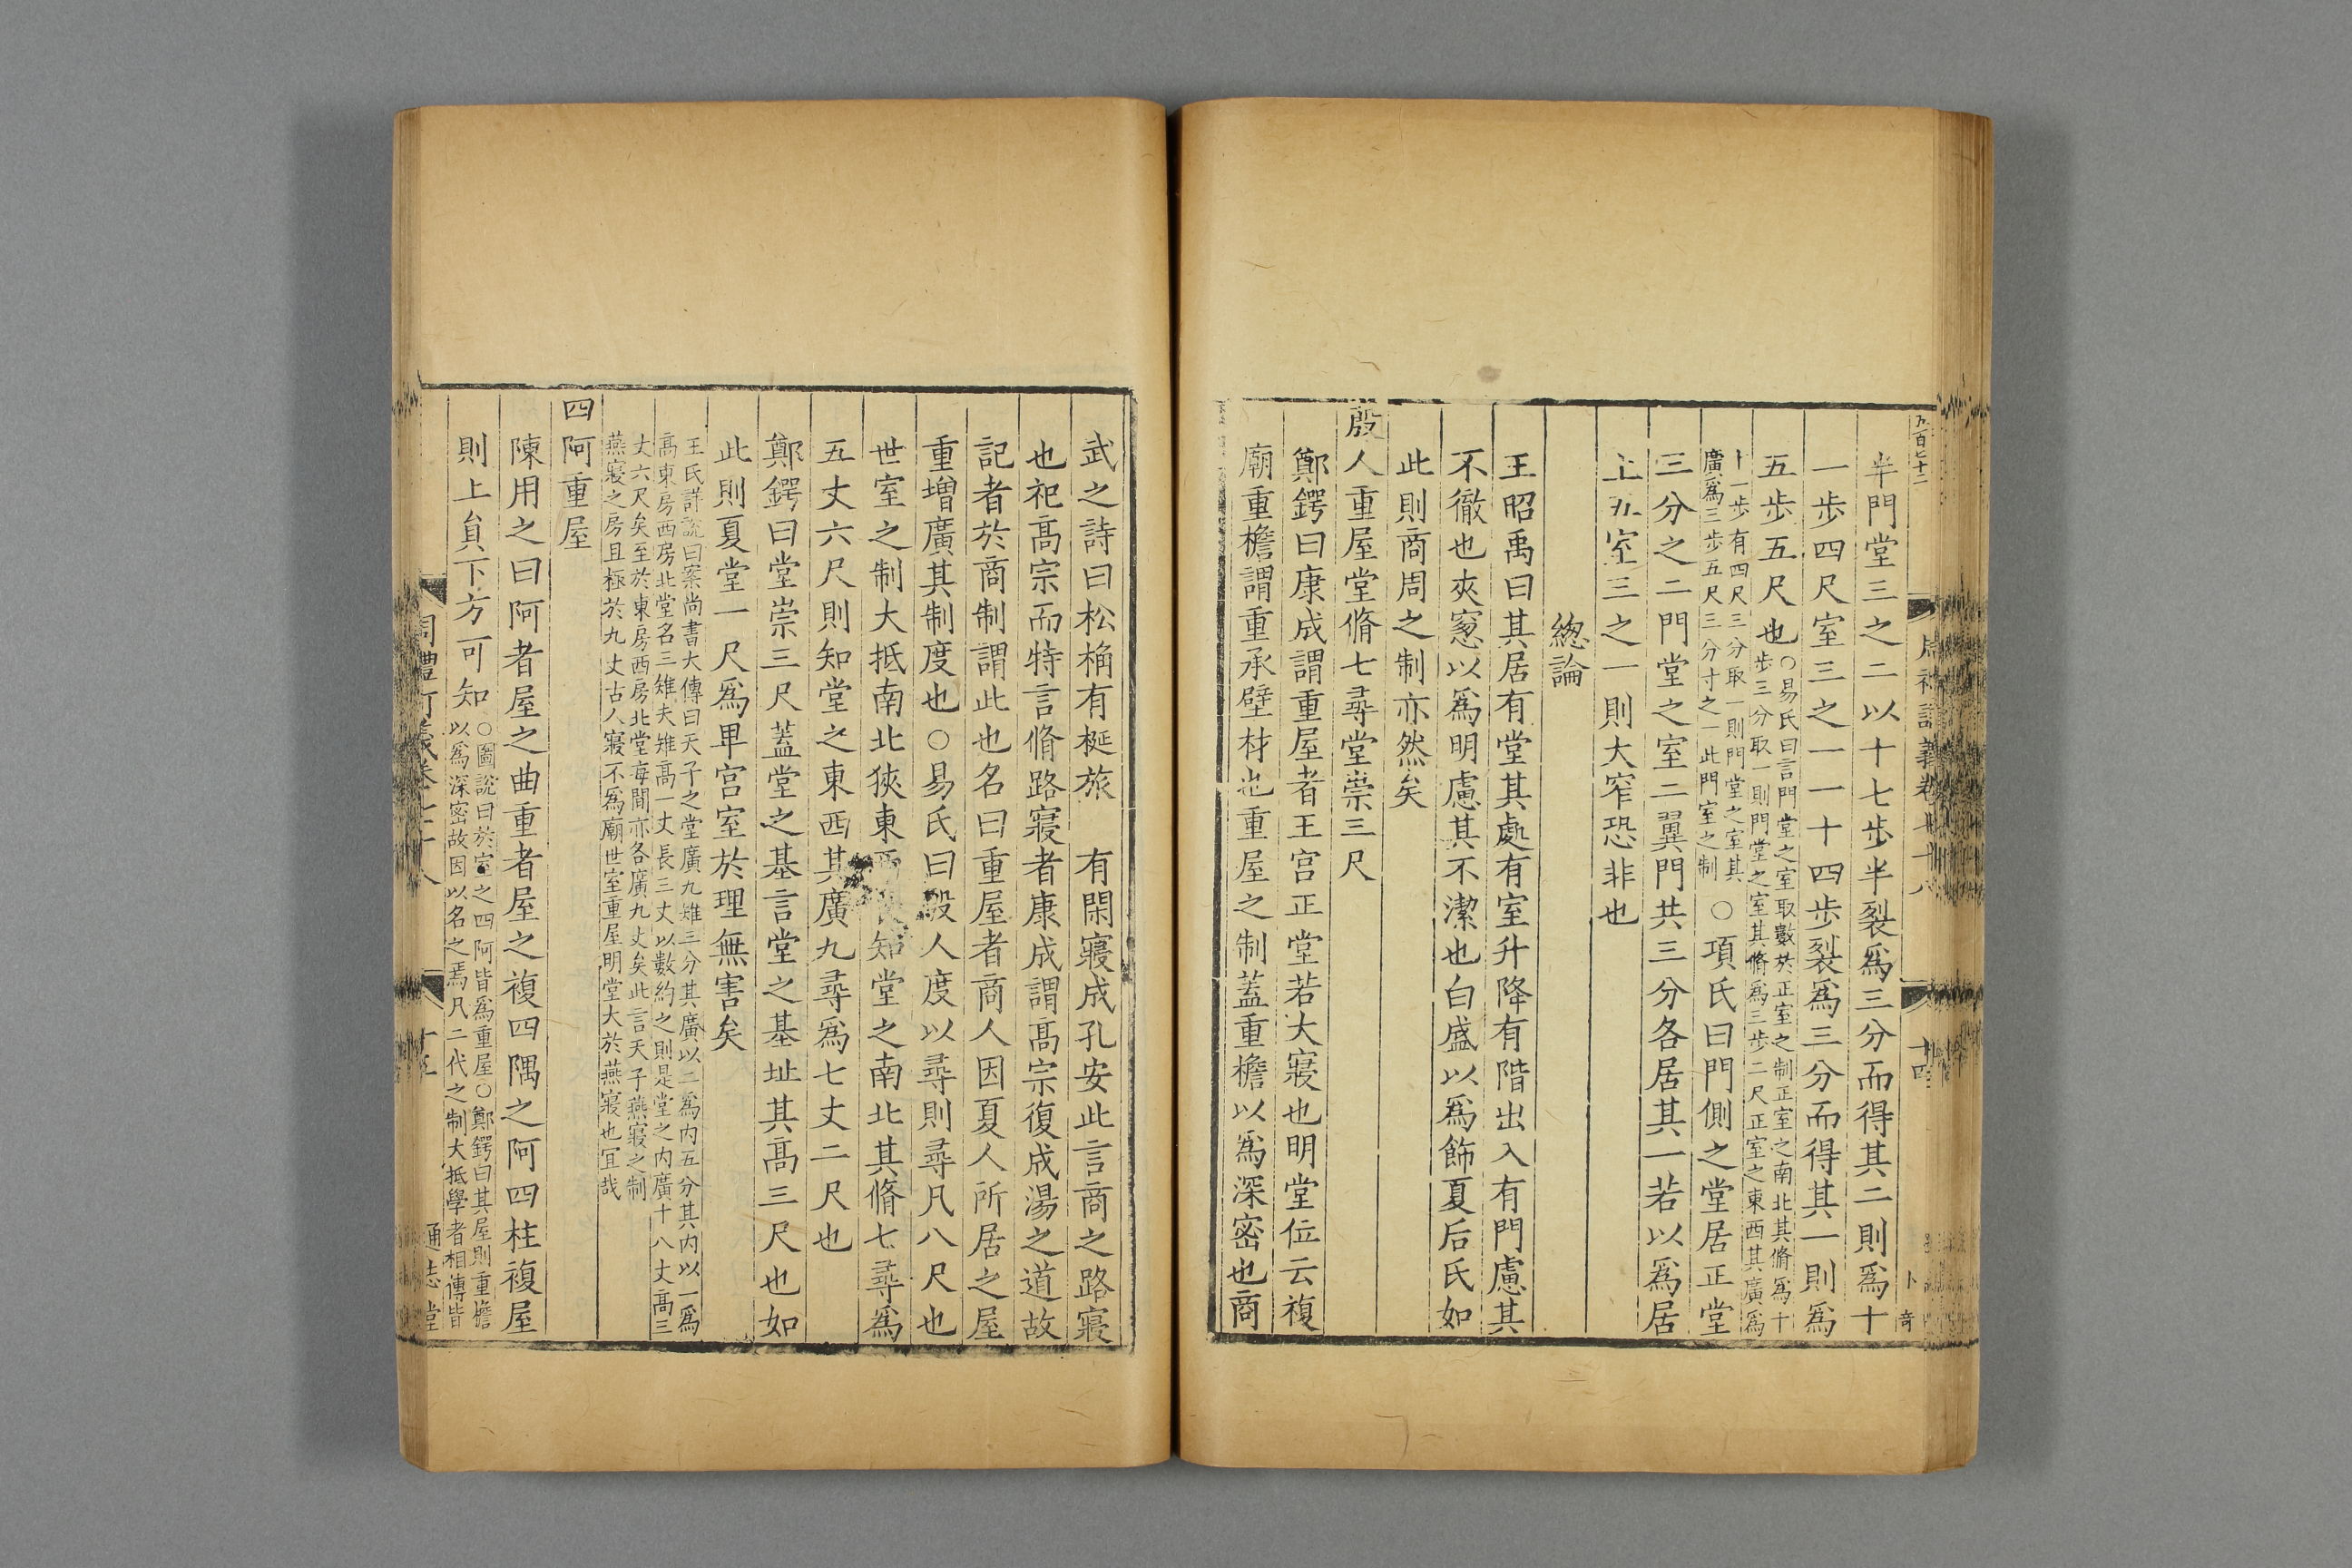 半門堂三之二以十七步半裂爲三分而得其二則爲十
一步四尺室三之一一十四步裂爲三分而得其一則爲
五步五尺也○易氏曰言門堂之室取數於正室之制正室之南北其脩爲十
步三分取一則門堂之室其脩爲三步二尺正室之東西其廣爲
十一步有四尺三分取一則門堂之室其
廣爲三步五尺三分寸之一此門室之制○項氏曰門側之堂居正堂
三分之二門堂之室二翼門共三分各居其一若以爲居
上五室三之一則大窄恐非也
總論
王昭禹曰其居有堂其處有室升降有階出入有門慮其
不徹也夾窻以爲明慮其不潔也白盛以爲飾夏后氏如
此則商周之制亦然矣
殷人重屋堂脩七尋堂崇三尺
鄭鍔曰康成謂重屋者王宮正堂若大寢也明堂位云複
廟重檐謂重承壁材也重屋之制蓋重檐以爲深密也商
武之詩曰松桷有梴旅 有閑寢成孔安此言商之路寢
也祀高宗而特言脩路寢者康成謂高宗復成湯之道故
記者於商制謂此也名曰重屋者商人因夏人所居之屋
重增廣其制度也○易氏曰殷人度以尋則尋凡八尺也
世室之制大抵南北狹東 知堂之南北其脩七尋爲
五丈六尺則知堂之東西其廣九尋爲七丈二尺也
鄭鍔曰堂崇三尺蓋堂之基言堂之基址其高三尺也如
此則夏堂一尺爲卑宮室於理無害矣
王氏詳說曰案尚書大傳曰天子之堂廣九雉三分其廣以二爲內五分其內以一爲
高東房西房北堂各三雉夫雉高一丈長三丈以數約之則是堂之內廣十八丈高三
丈六尺矣至於東房西房北堂每間亦各廣九丈矣此言天子燕寢之制
燕寢之房且極於九丈古人寢不爲廟世室重屋明堂大於燕寢也宜哉
四阿重屋
陳用之曰阿者屋之曲重者屋之複四隅之阿四柱複屋
則上貟下方可知○圖說曰於室之四阿皆爲重屋○鄭鍔曰其屋則重檐
以爲深密故因以名之焉凡二代之制大抵學者相傳皆
通志堂